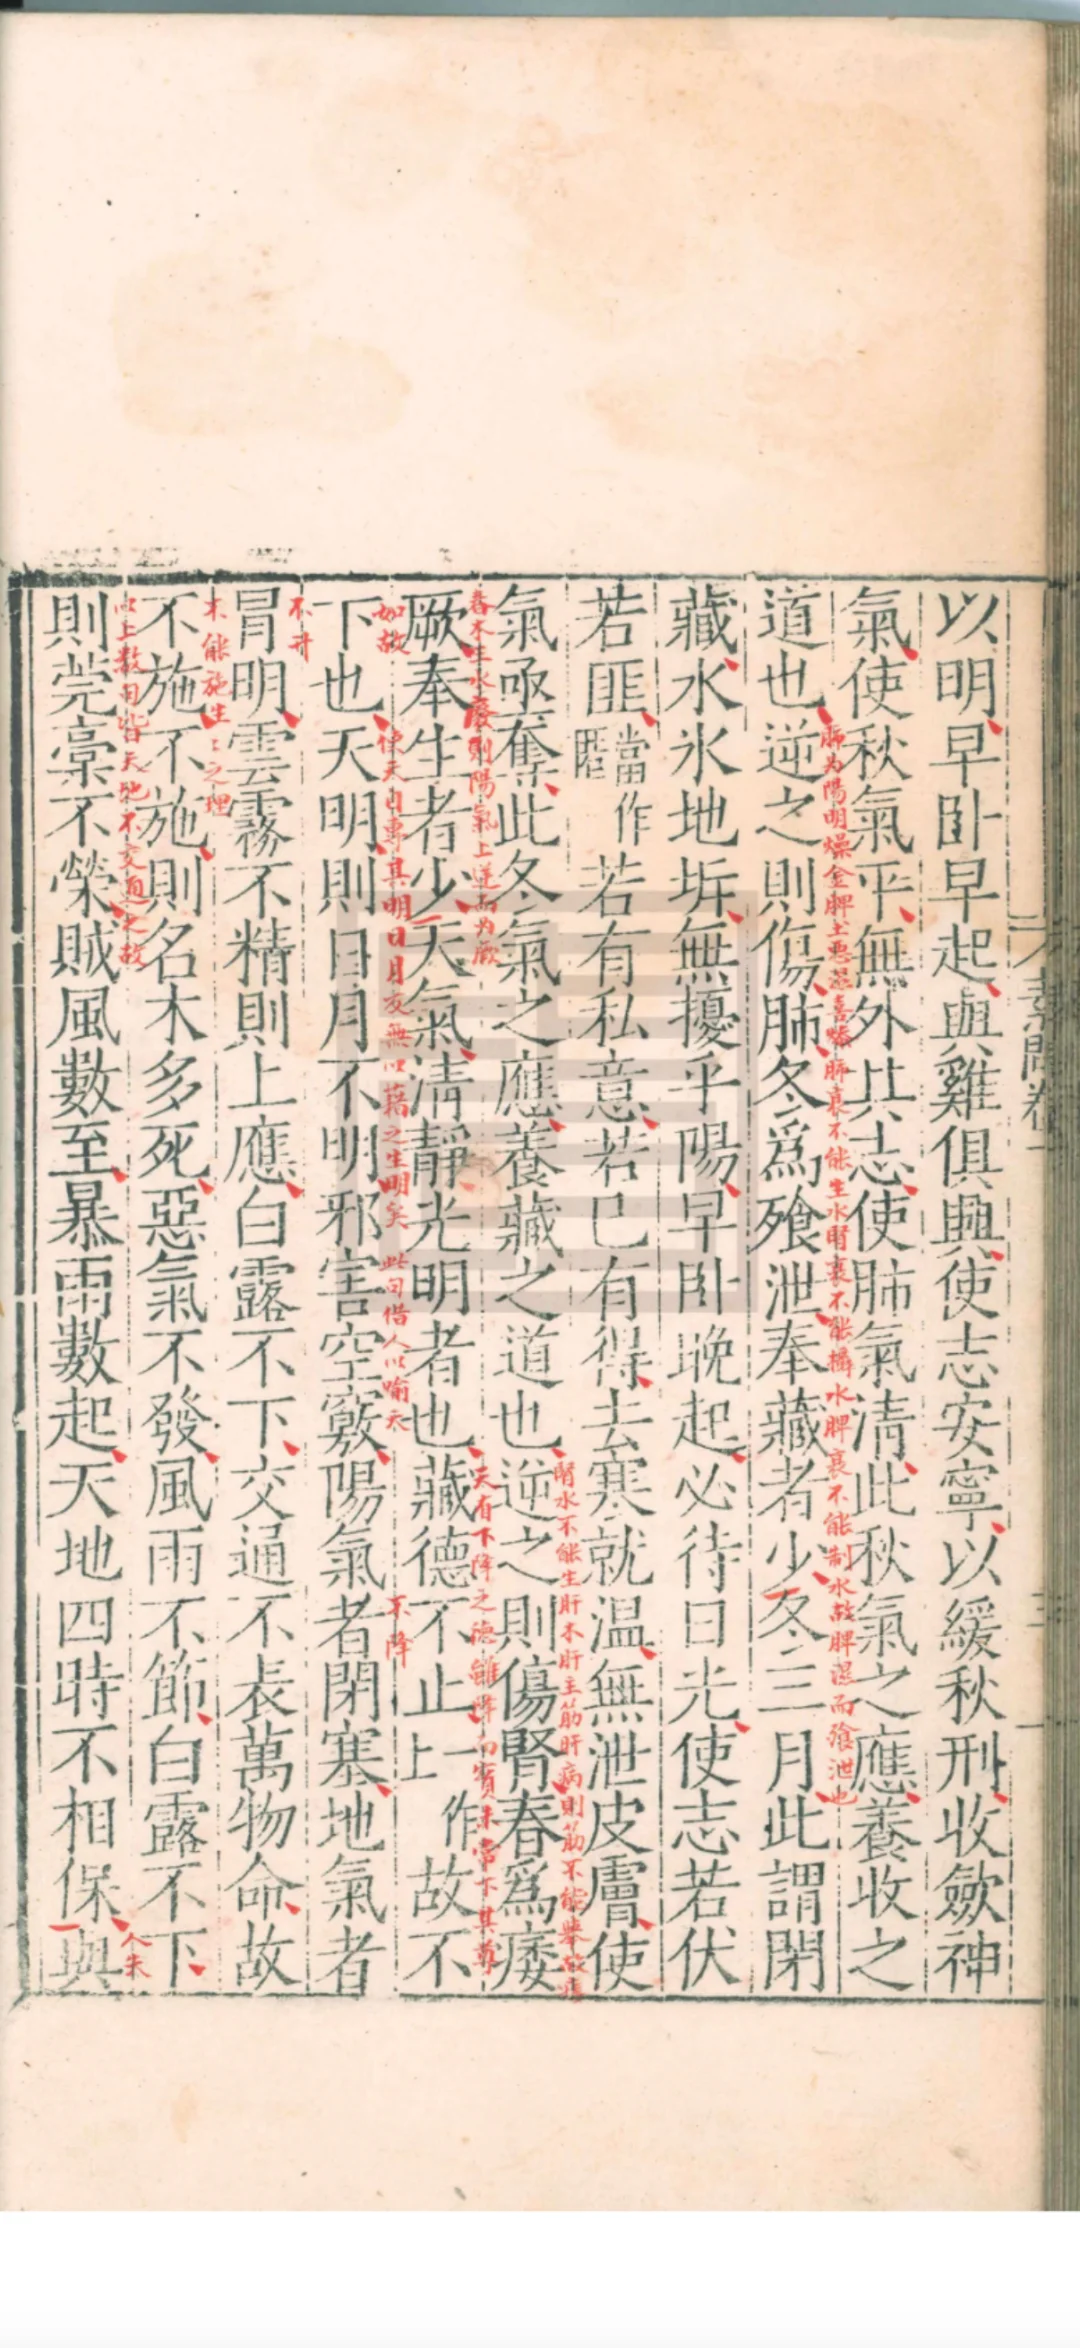 素問卷一
以明早卧早起與雞俱興使志安寧以緩秋刑收斂神
氣使秋氣平無外其志使肺氣清此秋氣之應養收之
肺为陽明燥金脾主惡湿喜燥肺衰不能生水腎衰不能攝水脾衰不能制水故脾濕而飧泄也
道也逆之則傷肺冬爲飱泄奉藏者少冬三月此謂閉
藏水氷地坼無擾乎陽早卧晚起必待日光使志若伏
若匪當作匿若有私意若已有得去寒就温無泄皮膚使
腎水不能生肝木肝主筋肝病則筋不能舉故痿
氣亟奪此冬氣之應養藏之道也逆之則傷腎春爲痿
春木王水廢則陽氣上逆而为厥
天有下降之德雖降而實未嘗下其尊
厥奉生者少天氣清靜光明者也藏德不止一作上故不
如故
使天自專其明日月友無以藉之生明矣
此句借人以喻天
不降
下也天明則日月不明邪害空竅陽氣者閉塞地氣者
不升
冐明雲霧不精則上應白露不下交通不表萬物命故
不能施生生之理
不施不施則名木多死惡氣不發風雨不節白露不下
以上数句皆天地不交通之故
人失
則菀槀不榮賊風數至暴雨數起天地四時不相保與